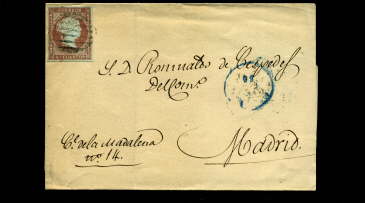 S. D. Romualdo de Cespedes
Del Com.o
C.e de la Madalena
n.o 14.
Madrid.